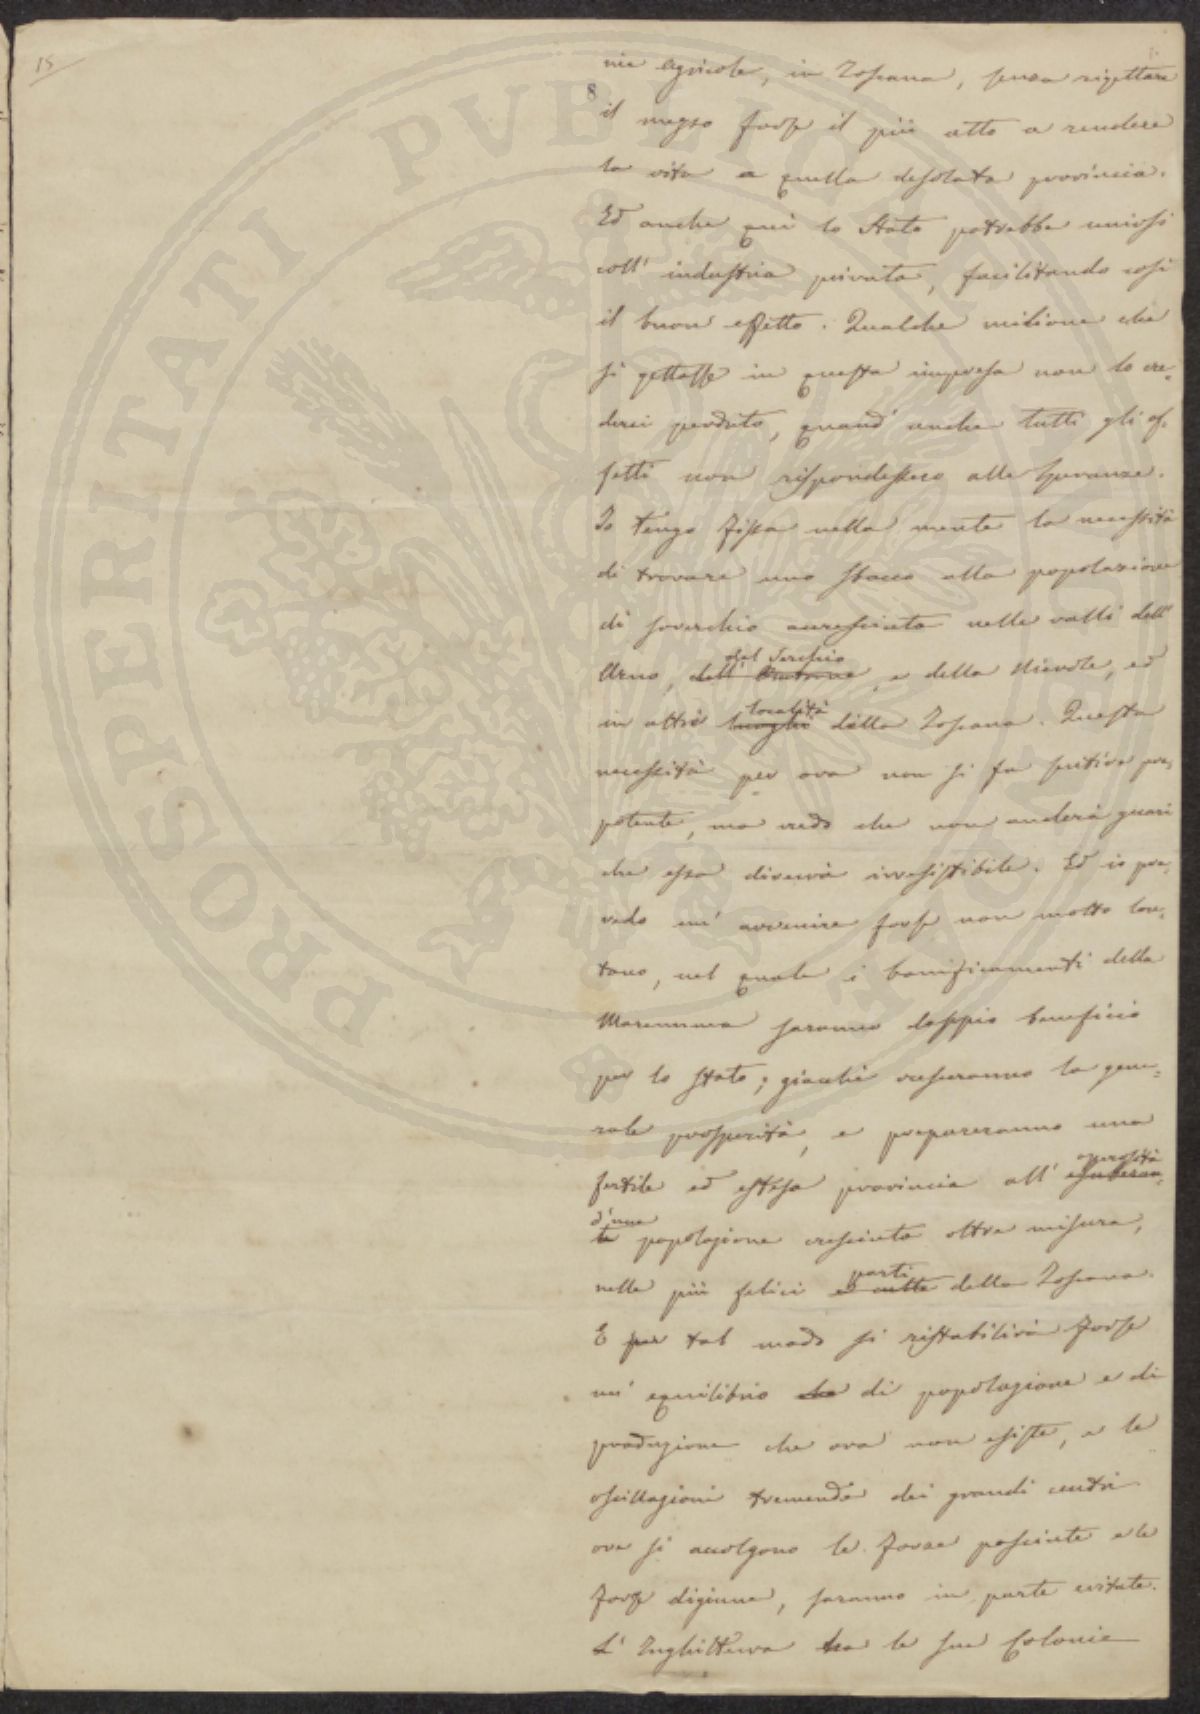 15
8
nie agricole, in Toscana, senza rigettare
il mezzo forse il più atto a rendere
la vita a quella desolata provincia.
Ed anche qui lo Stato potrebbe unirsi
coll' industria privata, facilitando così
il buon effetto. Qualche milione che
si gettasse in questa impresa non lo cre=
derei perduto, quand' anche tutti gli ef=
fetti non rispondessero alle speranze.
Io tengo fissa nella mente la necessità
di trovare uno sbocco alla popolazione
di soverchio accresciuta nelle valli dell'
del Serchio
Arno, dell' Ombrone, e della Nievole, ed
località
in altri luoghi della Toscana. Questa
necessità per ora non si fa sentire pre=
potente, ma credo che non anderà guari
che essa diverrà irresistibile. Ed io pre=
vedo un' avvenire forse non molto lon=
tano, nel quale i bonificamenti della
Maremma saranno doppio beneficio
per lo Stato; giacchè cresceranno la gene=
rale prosperità, e prepareranno una
operosità
fertile ed estesa provincia all' esuberan=
d'una
te popolazione cresciuta oltre misura,
parti
nelle più felici e culte della Toscana.
E per tal modo si ristabilirà forse
un' equilibrio di popolazione e di
produzione che ora non esiste, e le
oscillazioni tremende dei grandi centri
ove si accolgono le forze pasciute e le
forze digiune, saranno in parte evitate.
L' Inghilterra ha le sue Colonie
PROSPERITATI PVBLICAE AVGENDAE